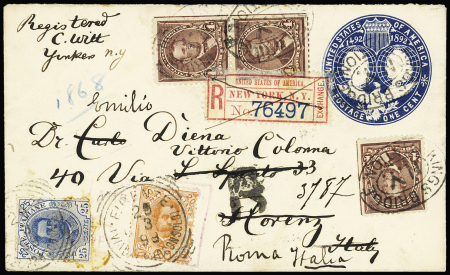 Registered
C. Witt
Yonkers N.Y
1868
UNITED STATES OF AMERICA
1492 1892
POSTAGE ONE CENT
UNITED STATES OF AMERICA
R
NEW YORK, N.Y.
EXCHANGE
No. 76497
Emilio
Dr. Carlo Diena
Vittorio Colonna
40 Via S Spirito 33
3787
Florenz
Roma Italia Italy
KINGSBRIDGE
25 25